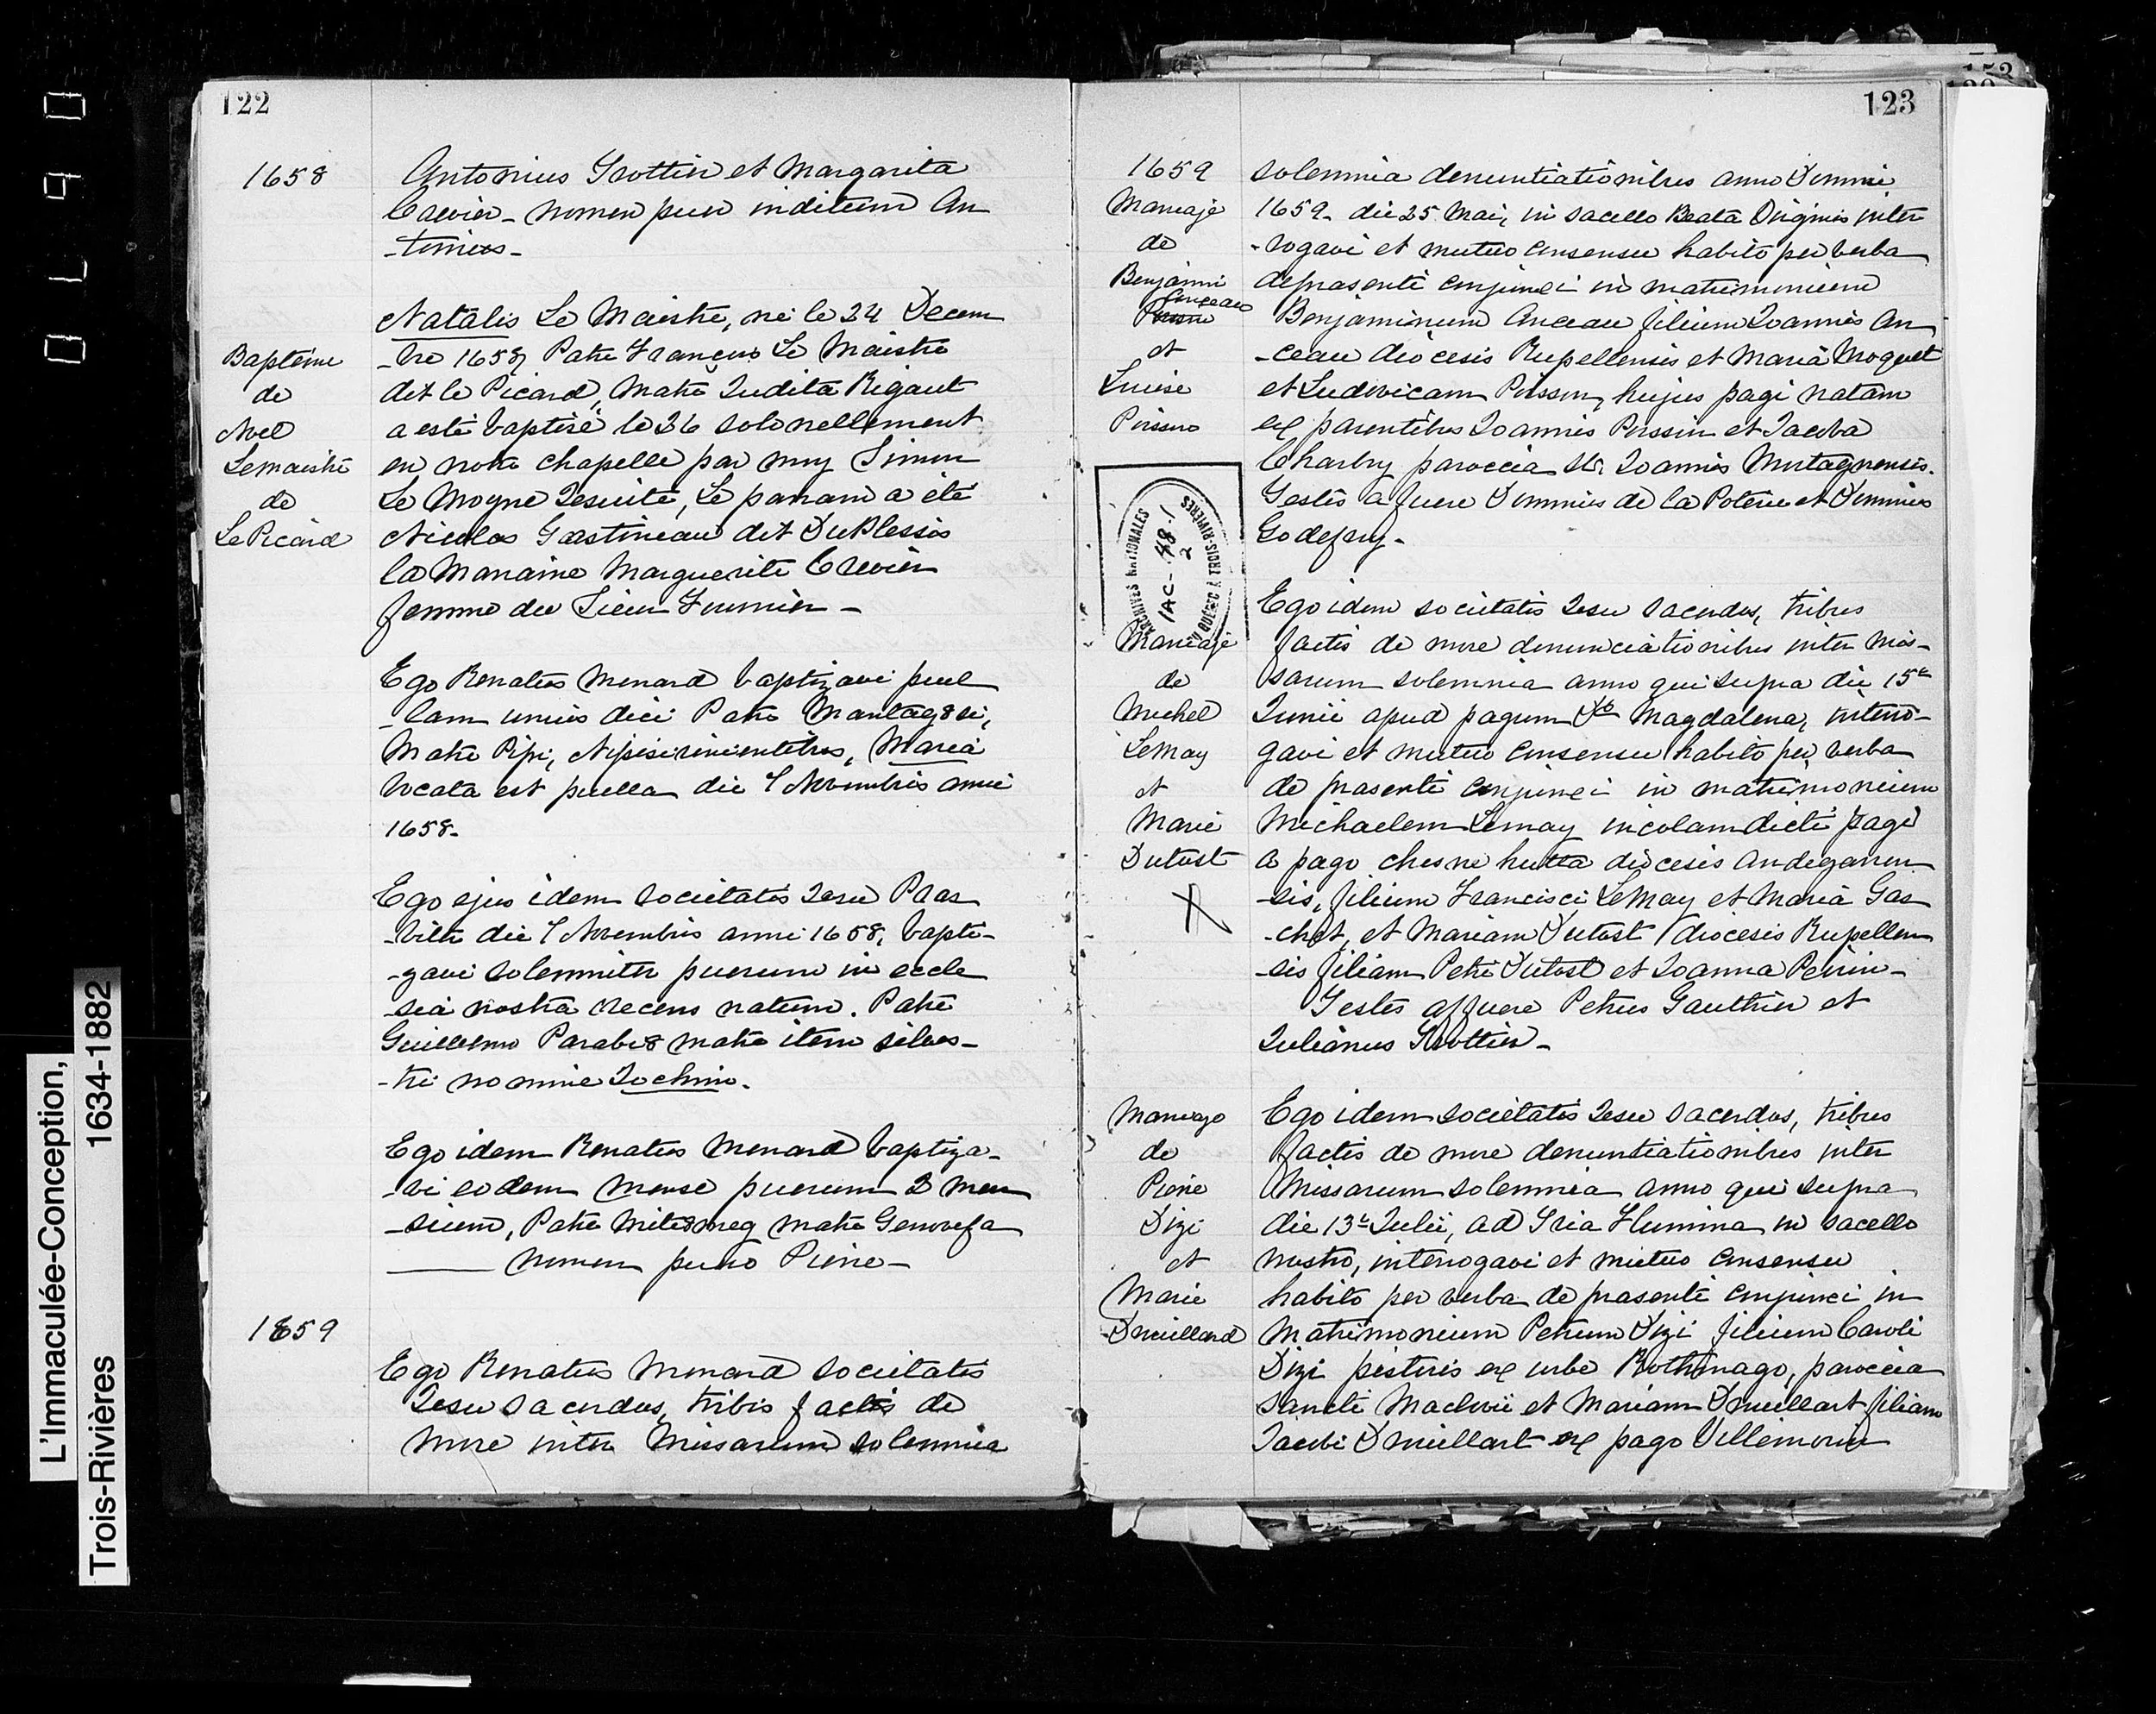 122
1658
Antonius Trottier et Margarita
Crevier - nomen puer inditum An
-tonius -
Natalis Le Maistre, né le 24 Decem
-bre 1658, Patre François Le Maistre
dit le Picard, Matre Judita Rigaut
a esté baptisé le 26 solonellement
en notre chapelle par moy Simon
Le Moyne Jesuite, Le parain a été
Nicolas Gastineau dit DuPlessis
la Maraine Marguerite Crevier
femme du Sieur Fournier -
Baptême
de
Noel
Lemaistre
de
Le Picard
Ego Renatus Menard baptizavi puel
-lam unius diei Patre
Matre Pipi, Nipisirinientibus, Maria
vocata est puella die 7 Novembris anni
1658.
Ego ejus idem societatis Jesu Praes
-biter die 7 Novembris anni 1658, bapti-
-zavi solemniter puerum in eccle
-sia nostra recens natum. Patre
Guillelmo Parabi8 matre item silves-
-tri nomine Jochim.
Ego idem Renatus Menard baptiza-
-vi eodem mense puerum 2 men
-sium, Patre matre Genovefa
nomen puero Pierre -
1659
Ego Renatus Menard societatis
Jesu Sacerdos, tribis factis de
more inter Missarum solemnia
123
1659
Mariage
de
Benjamin
Anceau
Poisson
et
Louise
Poisson
solemnia denuntiationibus anno Domini
1659. die 25 Mai, in sacello Beata Virginis inter
-rogavi et mutuo consensu habito per verba
depraesenti conjunxi in matrimonium
Benjaminum Anceau filium Joannis An
-ceau diocesis Rupellensis et Maria Moquet
et Ludovicam Poisson, hujus pagi natam
ex parentibus Joannis Poisson et Jacoba
Charbry paroccia Sti Joannis Mortagnensis.
Testes affuere Dominus de la Poterie et Dominus
Godefroy -
ARCHIVES NATIONALES
IAC- 48-1
2
DU QUÉBEC À TROIS-RIVIÈRES
Mariage
de
Michel
LeMay
et
Marie
Dutost
X
Ego idem societatis Jesu sacerdos, tribus
factis de more denunciationibus inter Mis-
sarum solemnia anno qui supra die 15a
Junii apud pagum Sta Magdalena, interro-
gavi et mutuo consensu habito per verba
de praesenti conjunxi in matrimonium
Michaelem Lemay incolam dicti pagi
a pago chesne hutta diocesis andegaven
-sis, filium Francisci LeMay et Maria Gas
-chet, et Mariam Dutost diocesis Rupellen
-sis filiam Petri Dutost et Joanna Perrin -
Testes affuere Petrus Gauthier et
Julianus Trottier -
Mariage
de
Pierre
Dizi
et
Marie
Drouillard
Ego idem societatis Jesu sacerdos, tribus
factis de more denuntiationibus inter
Missarum solemnia anno qui supra
die 13a Julii, ad Tria Flumina in sacello
nostro, interrogavi et mutuo consensu
habito per verba de praesenti conjunxi in
Matrimonium Petrum Dizi filium Caroli
Dizi pistoris ex urbe Rothomago, paroccia
Sancti Maclovii et Mariam Drouillart filiam
Jacobi Drouillart ex pago Villemorin
L'Immaculée-Conception,
Trois-Rivières 1634-1882
0490